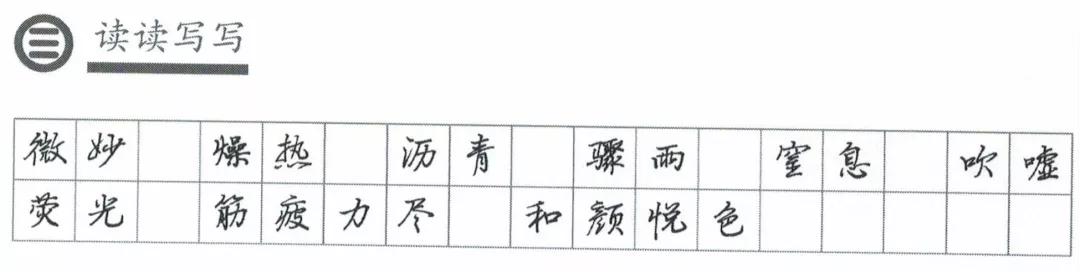 读读写写
微妙 燥热 沥青 骤雨 窒息 吹嘘
荧光 筋疲力尽 和颜悦色